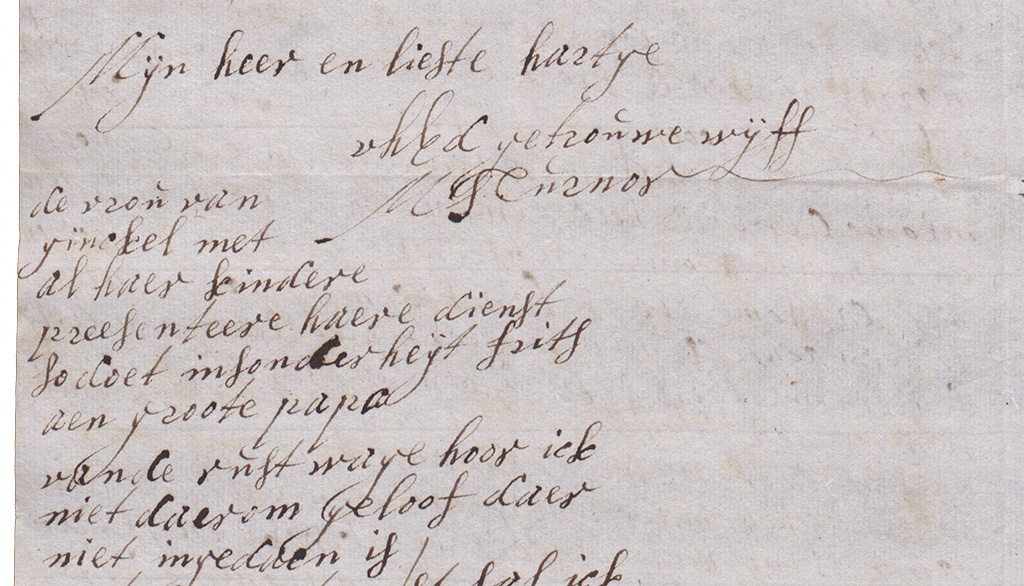 Mijn heer en lieste hartye
uhEd getrouwe wijff
M Turnor
de vrou van
ginckel met
al haer kindere
preesenteere haere dienst
so doet insonderheyt frits
aen groote papa
vande rust wage hoor ick
niet daerom geloof daer
niet ingedaen is
sal ick